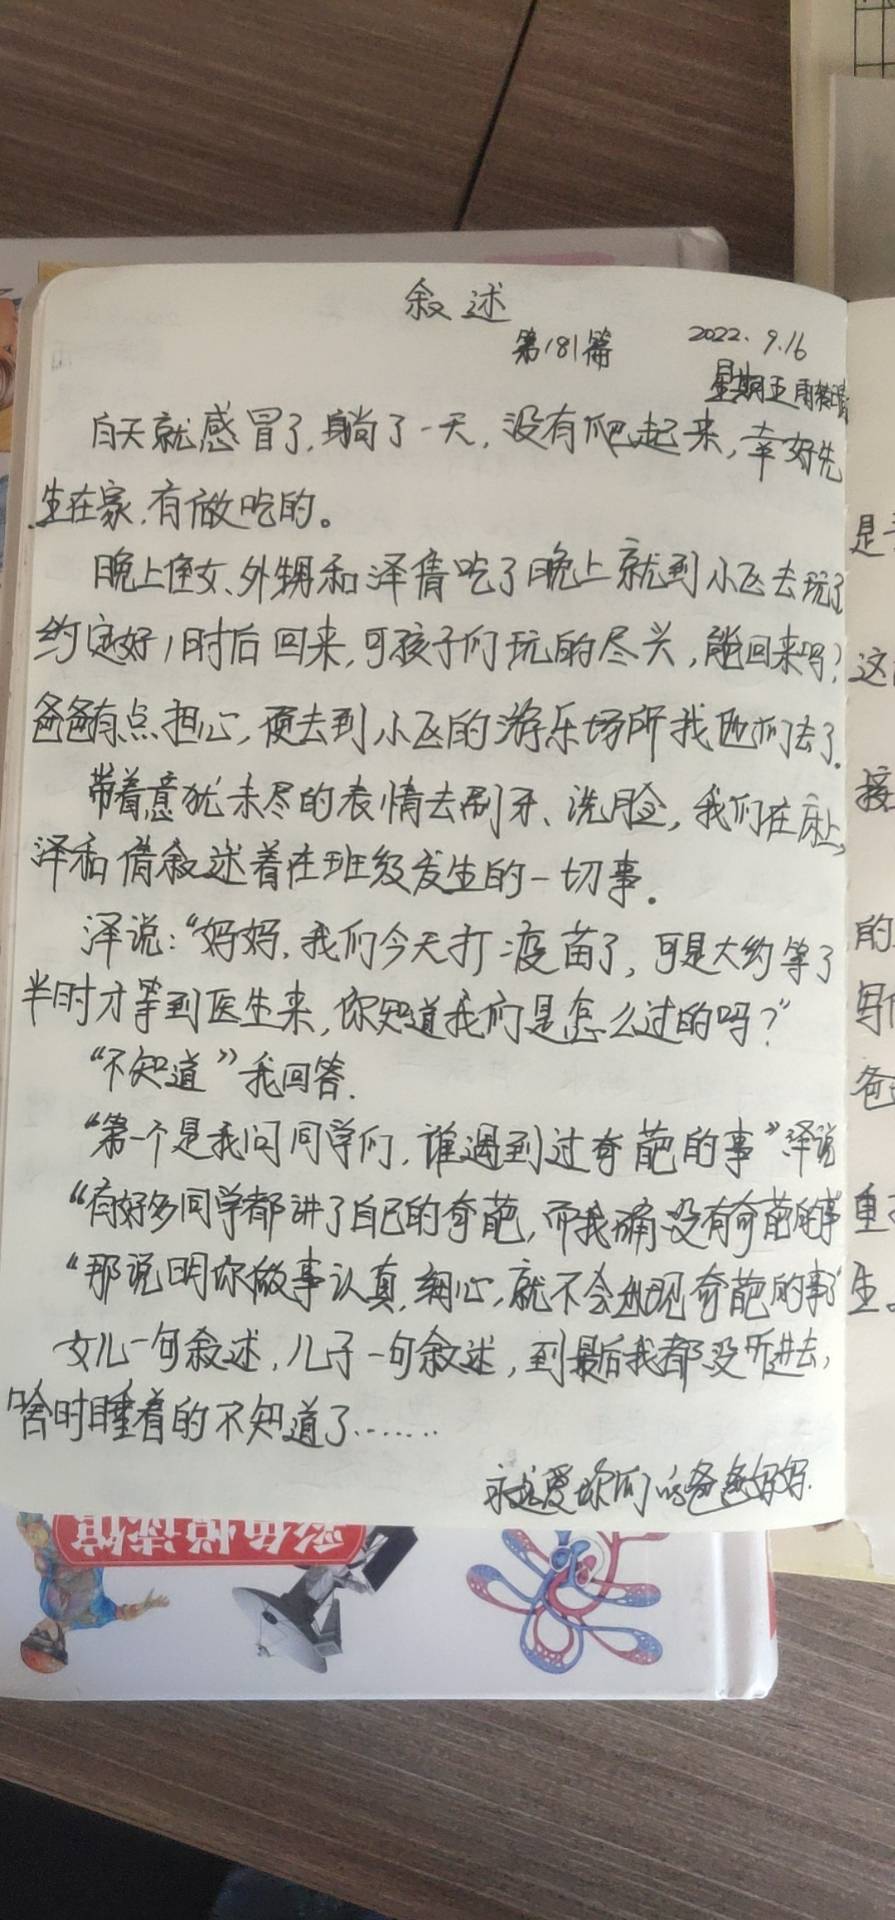 叙述
第181篇
2022.9.16
星期五 雨转晴
白天就感冒了,躺了一天,没有爬起来,幸好先
生在家,有做吃的。
晚上侄女、外甥和泽倩吃了晚上就到小飞去玩了
约定好1时后回来,可孩子们玩的尽头,能回来吗?
爸爸有点担心,便去到小飞的游乐场所找他们去了.
带着意犹未尽的表情去刷牙、洗脸,我们在床上,
泽和倩叙述着在班级发生的一切事.
泽说:“妈妈,我们今天打疫苗了,可是大约等了
半时才等到医生来,你知道我们是怎么过的吗?”
“不知道”我回答.
“第一个是我问同学们,谁遇到过奇葩的事”泽说
“有好多同学都讲了自己的奇葩,而我确没有奇葩的事
“那说明你做事认真,细心,就不会出现奇葩的事”
女儿一句叙述,儿子一句叙述,到最后我都没听进去,
啥时睡着的不知道了......
永远爱你们的爸爸妈妈.
是
这
接
的
写
爸
重
生。
彩色悦读馆